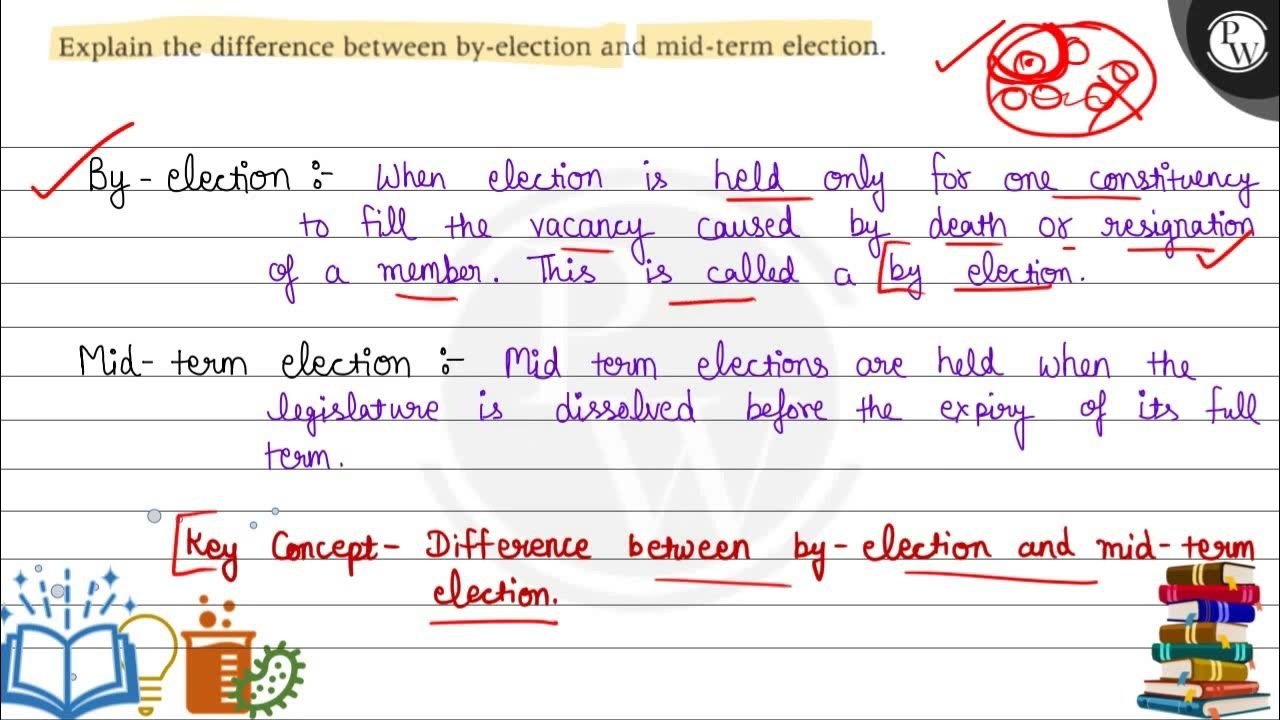 Explain the difference between by-election and mid-term election.
PW
By-election :- When election is held only for one constituency
to fill the vacancy caused by death or resignation
of a member. This is called a by election.
Mid-term election :- Mid term elections are held when the
legislature is dissolved before the expiry of its full
term.
Key Concept- Difference between by-election and mid-term
election.